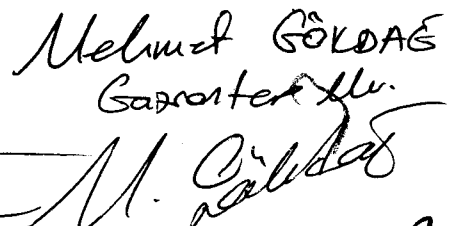 Mehmet GÖKDAĞ
Gaziantep Mv.
M. Gökdağ